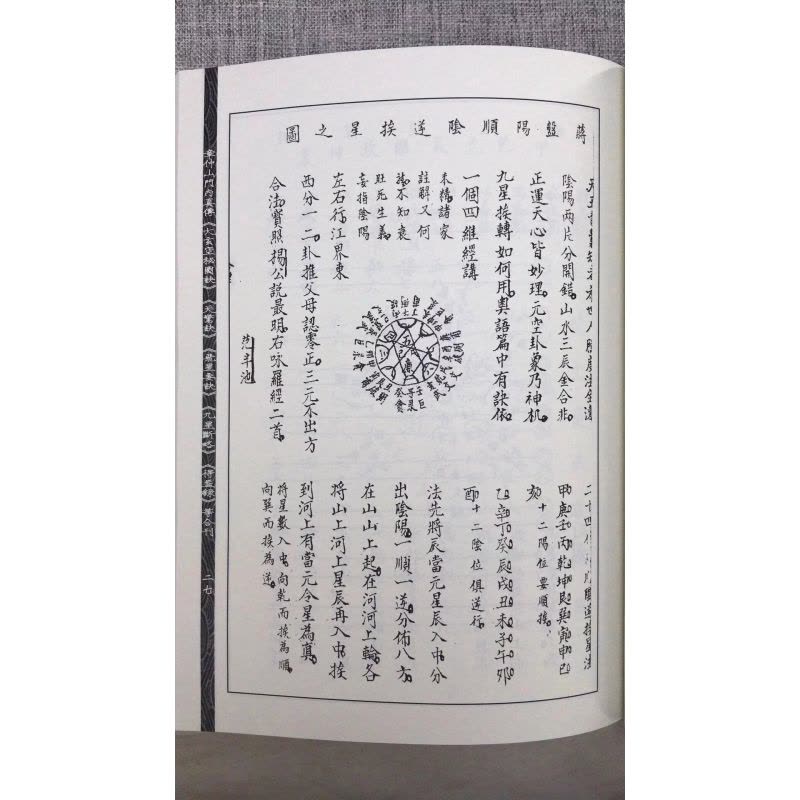 蔣盤陽順陰逆挨星之圖
陰陽兩片分開錯。山水三辰金合非
正運天心皆妙理。元空卦象乃神机。
九星挨轉如何用。奧語篇中有訣依。
一個四維經講
未精諸家
註解又何
不知衰
旺死生義
妄指陰陽
左右行。江界東
西分一二卦推父母認零正。三元不出方
合法。寶照揚公說最明。右咏羅經二首。
范羊池
二十四位順逆挨星法
甲庚壬丙乾坤艮巽寅申巳
亥十二陽位要順挨。
乙辛丁癸辰戌丑未子午卯
酉十二陰位俱逆行。
法先將辰當元星辰入中分
出陰陽一順一逆。分佈八方
在山山上起。在河河上輪。各
將山上河上星辰再入中。挨
到河上有當元令星為真。
將星數入中。向乾而挨為順
向巽而挨為逆。
章仲山門內真傳《大玄空秘圖訣》《天驚訣》《飛星要訣》《九星斷略》《得益錄》等合刊
二七